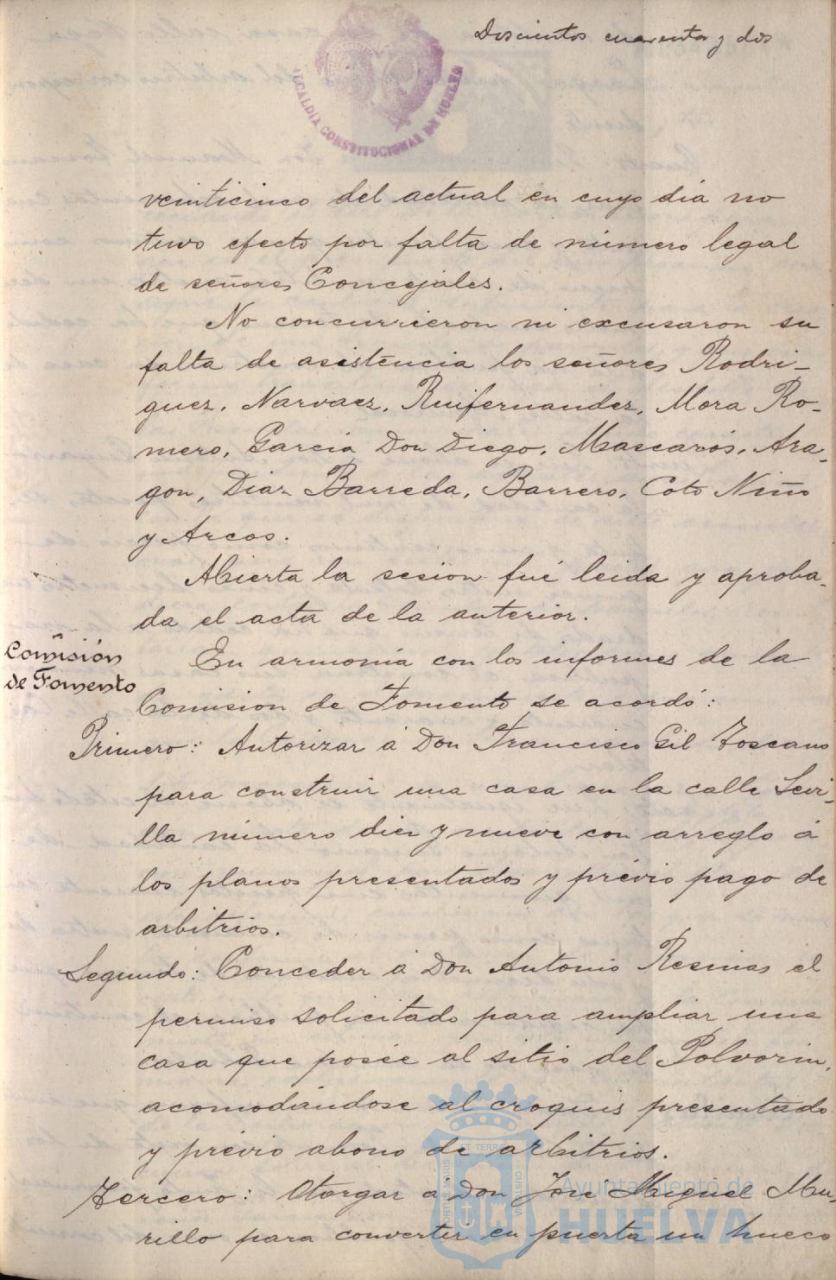 Doscientos cuarenta y dos
ALCALDIA CONSTITUCIONAL DE HUELVA
veinticinco del actual en cuyo dia no
tuvo efecto por falta de número legal
de señores Concejales.
No concurrieron ni excusaron su
falta de asistencia los señores Rodri-
guez, Narvaez, Ruifernandez, Mora Ro-
mero, García Don Diego, Mascarós, Ara-
gon, Diaz Barreda, Barrero, Coto Niño
y Arcos.
Abierta la sesion fué leida y aproba-
da el acta de la anterior.
Comisión
de Fomento
En armonía con los informes de la
Comision de Fomento se acordó:
Primero: Autorizar á Don Francisco Gil Toscano
para construir una casa en la calle Sevi-
lla número diez y nueve con arreglo á
los planos presentados y prévio pago de
arbitrios.
Segundo: Conceder á Don Antonio Resinas el
permiso solicitado para ampliar una
casa que posée al sitio del Polvorin,
acomodándose al croquis presentado
y prévio abono de arbitrios.
Tercero: Otorgar á Don José Miguel Mu-
rillo para convertir en puerta un hueco
Ayuntamiento de
HUELVA